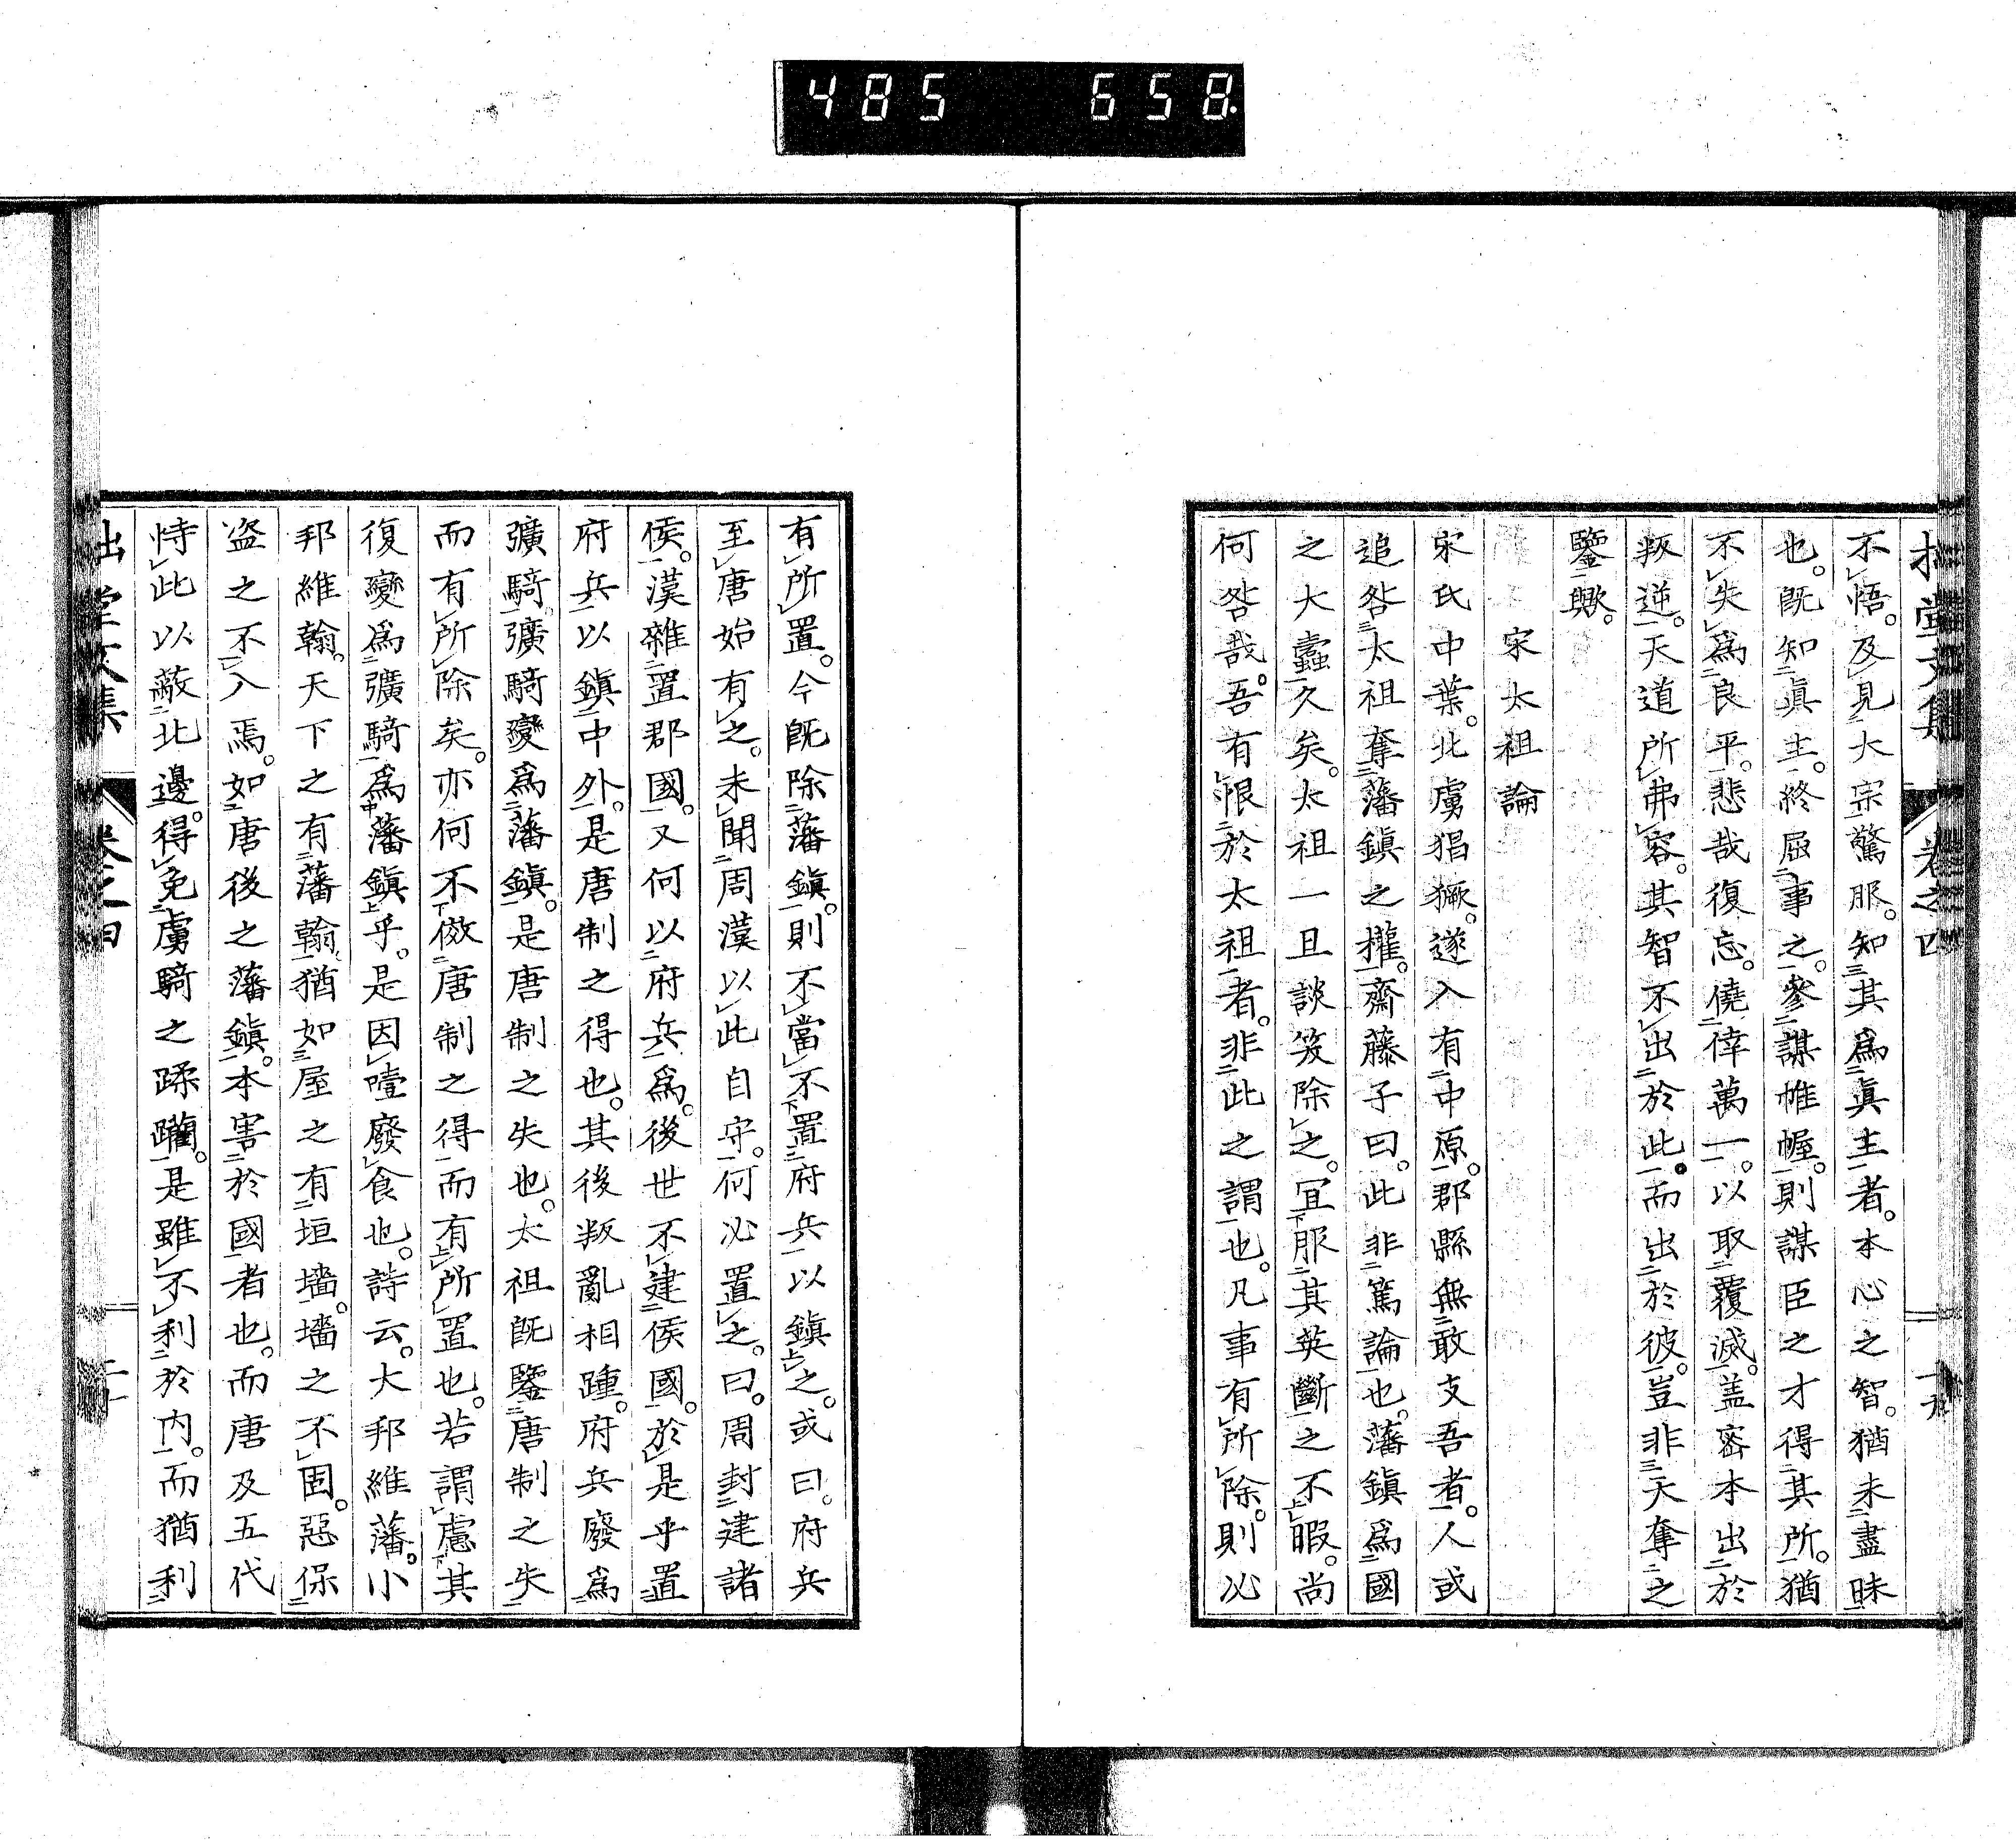 485 658.
拙堂文集 卷之四
不悟。及見大宗驚服。知其爲眞主者。本心之智。猶未盡昧
也。旣知眞主。終屈事之。參謀帷幄。則謀臣之才得其所。猶
不失爲良平。悲哉復忘。僥倖萬一。以取覆滅。盖密本出於
叛逆。天道所弗容。其智不出於此。而出於彼。豈非天奪之
鑒歟。
宋太祖論
宋氏中葉。北虜猖獗。遂入有中原。郡縣無敢支吾者。人或
追咎太祖奪藩鎭之權。齋藤子曰。此非篤論也。藩鎭爲國
之大蠹久矣。太祖一旦談笑除之。冝服其英斷之不暇。尚
何咎哉。吾有恨於太祖者。非此之謂也。凡事有所除。則必
有所置。今旣除藩鎭。則不當不置府兵以鎭之。或曰。府兵
至唐始有之。未聞周漢以此自守。何必置之。曰。周封建諸
侯。漢雜置郡國。又何以府兵爲。後世不建侯國。於是乎置
府兵以鎭中外。是唐制之得也。其後叛亂相踵。府兵廢爲
彍騎。彍騎變爲藩鎭。是唐制之失也。太祖旣鑒唐制之失
而有所除矣。亦何不傚唐制之得而有所置也。若謂慮其
復變爲彍騎爲藩鎭乎。是因噎廢食也。詩云。大邦維藩。小
邦維翰。天下之有藩翰。猶如屋之有垣墻。墻之不固。惡保
盗之不入焉。如唐後之藩鎭。本害於國者也。而唐及五代
恃此以蔽北邊。得免虜騎之蹂躪。是雖不利於内。而猶利
拙堂文集 卷之四